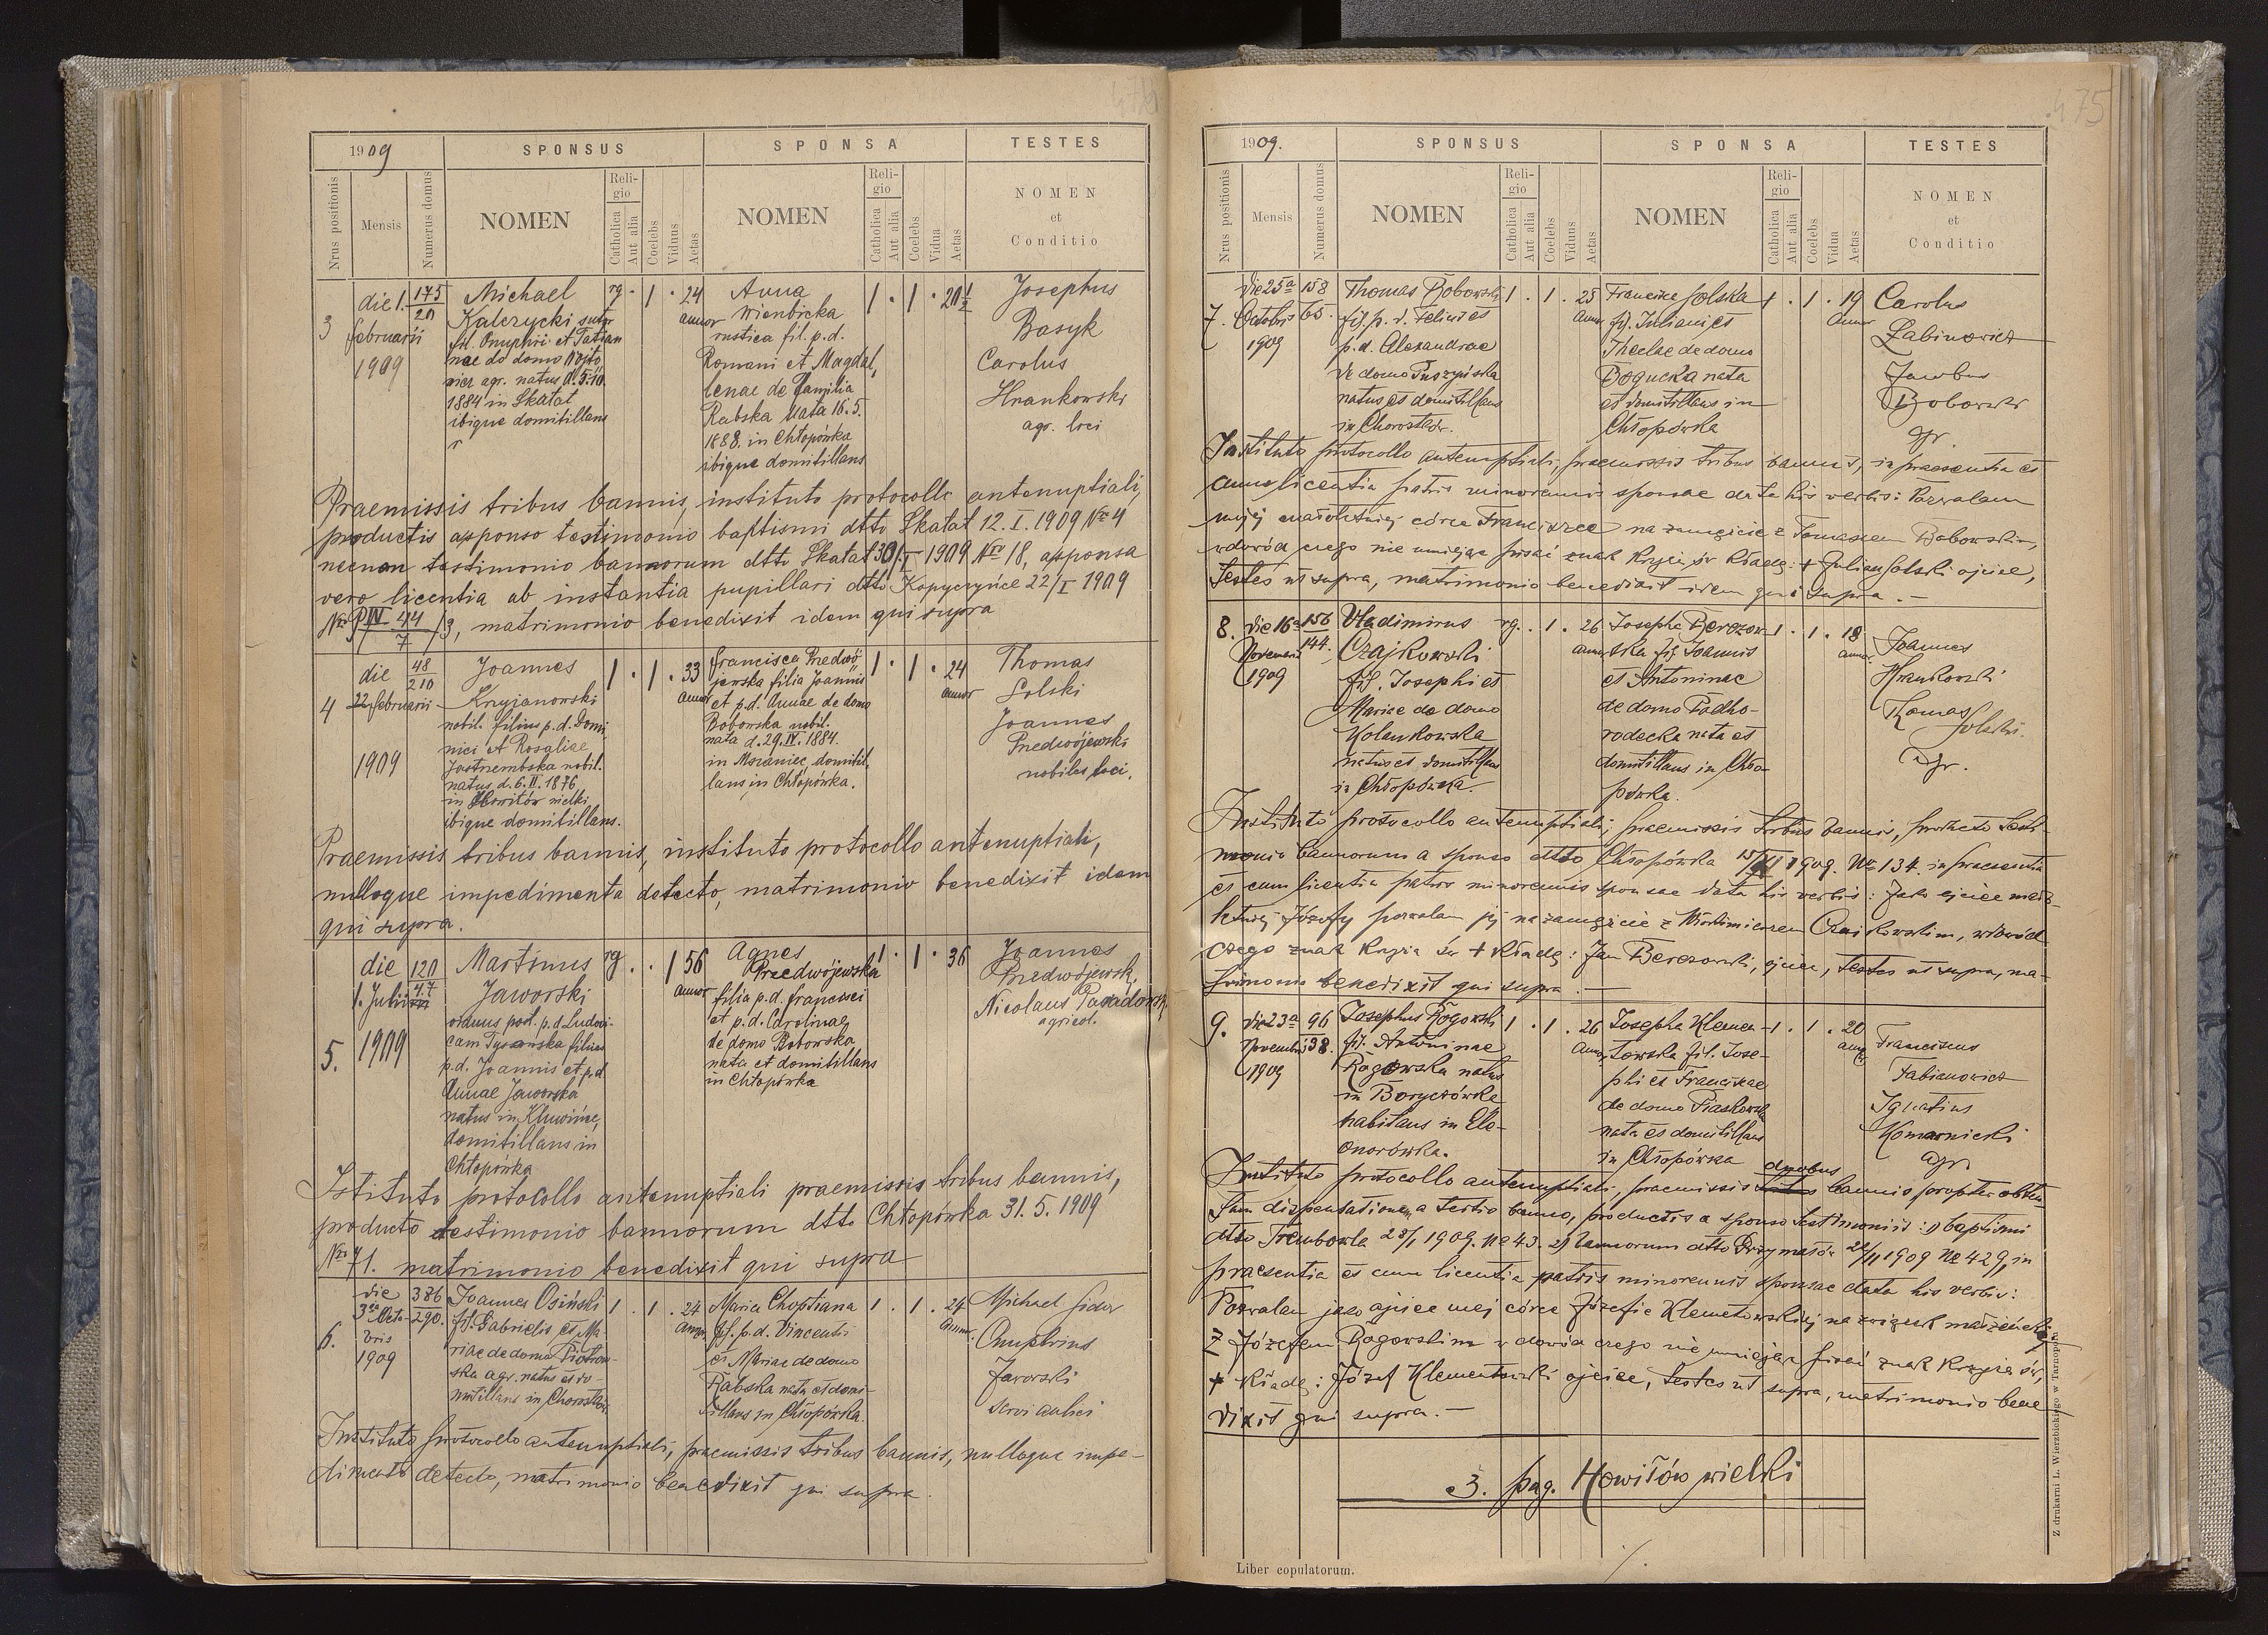 1909
SPONSUS
SPONSA
TESTES
Nrus positionis
Mensis
Numerus domus
NOMEN
Religio
Catholica
Aut alia
Coelebs
Viduus
Aetas
NOMEN
Religio
Catholica
Aut alia
Coelebs
Vidua
Aetas
NOMEN
et
Conditio
3
die 1.
februarii
1909
175
20
Michael
Kalczycki sutor
fil. Onuphri et Tatian
nae de domo Wojto
wicz agr. natus d. 5.10.
1884 in Skałat
ibique domitillans
rg · 1 · 24
annor
Anna
Wienbicka
rustica fil. p.d.
Romani et Magdal,
lenae de familia
Rabska nata 16.5.
1888. in Chłopówka
ibique domitillans
1 · 1 · 20 1/2
Josephus
Basyk
Carolus
Hrankowski
agr. loci
Praemissis tribus bannis, instituto protocollo antenuptiali,
productis asponso testimonio baptismi dtto Skałat 12. I. 1909 Nro 4
necnon testimonio bannorum dtto Skałat 30/I 1909 Nro 18, asponsa
vero licentia ab instantia pupillari dtto Kopyczyńce 22/I 1909
Nro P IV 44/7 /3, matrimonio benedixit idem qui supra
4
die
22 februarii
1909
48
210
Joannes
Krzyjanowski
nobil. filius p.d. Domi
nici et Rosaliae
Jastrzembska nobil.
natus d. 6. II. 1876
in Howiłów wielki
ibique domitillans.
1 · 1 · 33
annor
Francisca Przedwó
jewska filia Joannis
et p.d. Annae de domo
Bobowska nobil.
nata d. 29. IV. 1884.
in Mszaniec domitil,
lans in Chłopówka.
1 · 1 · 24
annor
Thomas
Solski
Joannes
Przedwójewski
nobiles loci.
Praemissis tribus bannis, instituto protocollo antenuptiali,
nulloque impedimento detecto, matrimonio benedixit idem
qui supra.
5.
die
1. Julii
1909
120
47
Martinus
Jaworski
viduus post. p.d. Ludovi-
cam Tysańska filius
p.d. Joannis et p.d.
Annae Jaworska
natus in Kluwińce,
domitillans in
Chłopówka
rg · · 1 56
annor
Agnes
Przedwójewska
filia p.d. Francisci
et p.d. Carolinae
de domo Bobowska
nata et domitillans
in Chłopówka
1 · 1 · 36
Joannes
Przedwójewski,
Nicolaus Paradowski
agricol.
Istituto protocollo antenuptiali praemissis tribus bannis,
producto testimonio bannorum dtto Chłopówka 31. 5. 1909
Nro 71. matrimonio benedixit qui supra
6.
die
3 a Octo-
bris
1909
386
290.
Joannes Osiński
fil. Gabrielis et Ma-
riae de domo Piotrow-
ska agr. natus et do-
mitillans in Chorostków.
1 · 1 · 24
annor.
Maria Choptiana
fil. p.d. Vincentii
et Mariae de domo
Rabska nata et domi-
tillans in Chłopówka.
1 · 1 · 24
annor.
Michael Sidor
Onuphrius
Jaworski
servi aulici
Instituto protocollo antenuptiali, praemissis tribus bannis, nulloque impe-
dimento detecto, matrimonio benedixit qui supra.
475
1909.
SPONSUS
SPONSA
TESTES
Nrus positionis
Mensis
Numerus domus
NOMEN
Religio
Catholica
Aut alia
Coelebs
Viduus
Aetas
NOMEN
Religio
Catholica
Aut alia
Coelebs
Vidua
Aetas
NOMEN
et
Conditio
7.
Die 25 a
Octobris
1909
158
65.
Thomas Bobowski
fil. p. d. Felicis et
p. d. Alexandrae
de domo Puszyńska
natus et domitillans
in Chorostków.
1 · 1 · 25
annor
Francisca Solska
fil. Juliani et
Theclae de domo
Bogucka nata
et domitillans in
Chłopówka
1 · 1 · 19
annor
Carolus
Łabinowicz
Jacobus
Bobowski
agr.
Instituto protocollo antenuptiali, praemissis tribus bannis, in praesentia et
cum licentia patris minorennis sponsae data his verbis: Pozwalam
mojej małoletniej córce Franciszce na zamęzcie z Tomaszem Bobowskim,
w dowód czego nie umiejąc pisać znak krzyża św. kładę: + Julian Solski ojciec,
Testes ut supra, matrimonio benedixit idem qui supra. —
8.
Die 16 a
Novembris
1909
156
144.
Vladimirus
Czajkowski
fil. Josephi et
Mariae de domo
Kolankowska
natus et domitillans
in Chłopówka.
rg. · 1 · 26
annor
Josepha Berezow-
ska fil. Joannis
et Antoninae
de domo Podho-
rodecka nata et
domitillans in Chło-
pówka.
1 · 1 · 18
annor.
Joannes
Hrankowski
Thomas
Solski.
Agr.
Instituto protocollo antenuptiali, praemissis tribus bannis, producto testi-
monio bannorum a sponso dtto Chłopówka 15/XI 1909. No 134. in praesentia
et cum licentia patris minorennis sponsae data his verbis: Jako ojciec mało-
letniej Józefy pozwalam jej na zamęzcie z Włodzimierzem Czajkowskim, w dowód
czego znak krzyża św + kładę: Jan Berezowski, ojciec, testes ut supra, ma-
trimonio benedixit qui supra. —
9.
Die 23 a
Novembris
1909
96
38.
Josephus Rogowski
fil. Antoninae
Rogowska natus
in Boryczówka
habitans in Ele-
onorówka.
1 · 1 · 26
annor
Josepha Klemen-
towska fil. Jose-
phi et Franciscae
de domo Piaskowska
nata et domitillans
in Chłopówka
1 · 1 · 20
annor
Franciscus
Fabianowicz
Ignatius
Komarnicki
agr.
duobus
Instituto protocollo antenuptiali, praemissis tribus bannis propter obten-
tam dispensationem a tertio banno, productis a sponso testimoniis: 1) baptismi
dtto Trembowla 23/1 1909. No 43. 2) bannorum dtto Grzymałów 22/11 1909 No 429, in
praesentia et cum licentia patris minorennis sponsae data his verbis:
Pozwalam jako ojciec mej córce Józefie Klementowskiej na związek małżeński
z Józefem Rogowskim w dowód czego nie umiejąc pisać znak krzyża św,
+ kładę: Józef Klementowski ojciec, testes ut supra, matrimonio bene
dixit qui supra. —
3. pag. Howiłów wielki
Liber copulatorum.
Z drukarni L. Wierzbickiego w Tarnopolu